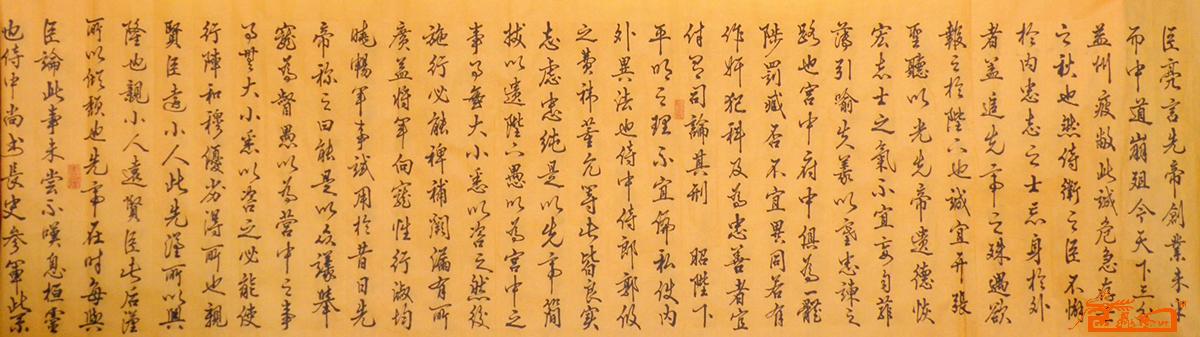 臣亮言先帝創業未半
而中道崩殂今天下三分
益州疲敝此誠危急存亡
之秋也然侍衛之臣不懈
於內忠志之士忘身於外
者蓋追先帝之殊遇欲
報之於陛下也誠宜開張
聖聽以光先帝遺德恢
宏志士之氣不宜妄自菲
薄引喻失義以塞忠諫之
路也宮中府中俱為一體
陟罰臧否不宜異同若有
作奸犯科及為忠善者宜
付有司論其刑 昭陛下
平明之理不宜偏私使內
外異法也侍中侍郎郭攸
之費禕董允等此皆良實
志慮忠純是以先帝簡
拔以遺陛下愚以為宮中之
事事無大小悉以咨之然後
施行必能裨補闕漏有所
廣益將軍向寵性行淑均
曉暢軍事試用於昔日先
帝稱之曰能是以眾議舉
寵為督愚以為營中之事
事無大小悉以咨之必能使
行陣和穆優劣得所也親
賢臣遠小人此先漢所以興
隆也親小人遠賢臣此后漢
所以傾頹也先帝在時每與
臣論此事未嘗不嘆息桓靈
也侍中尚書長史參軍此悉